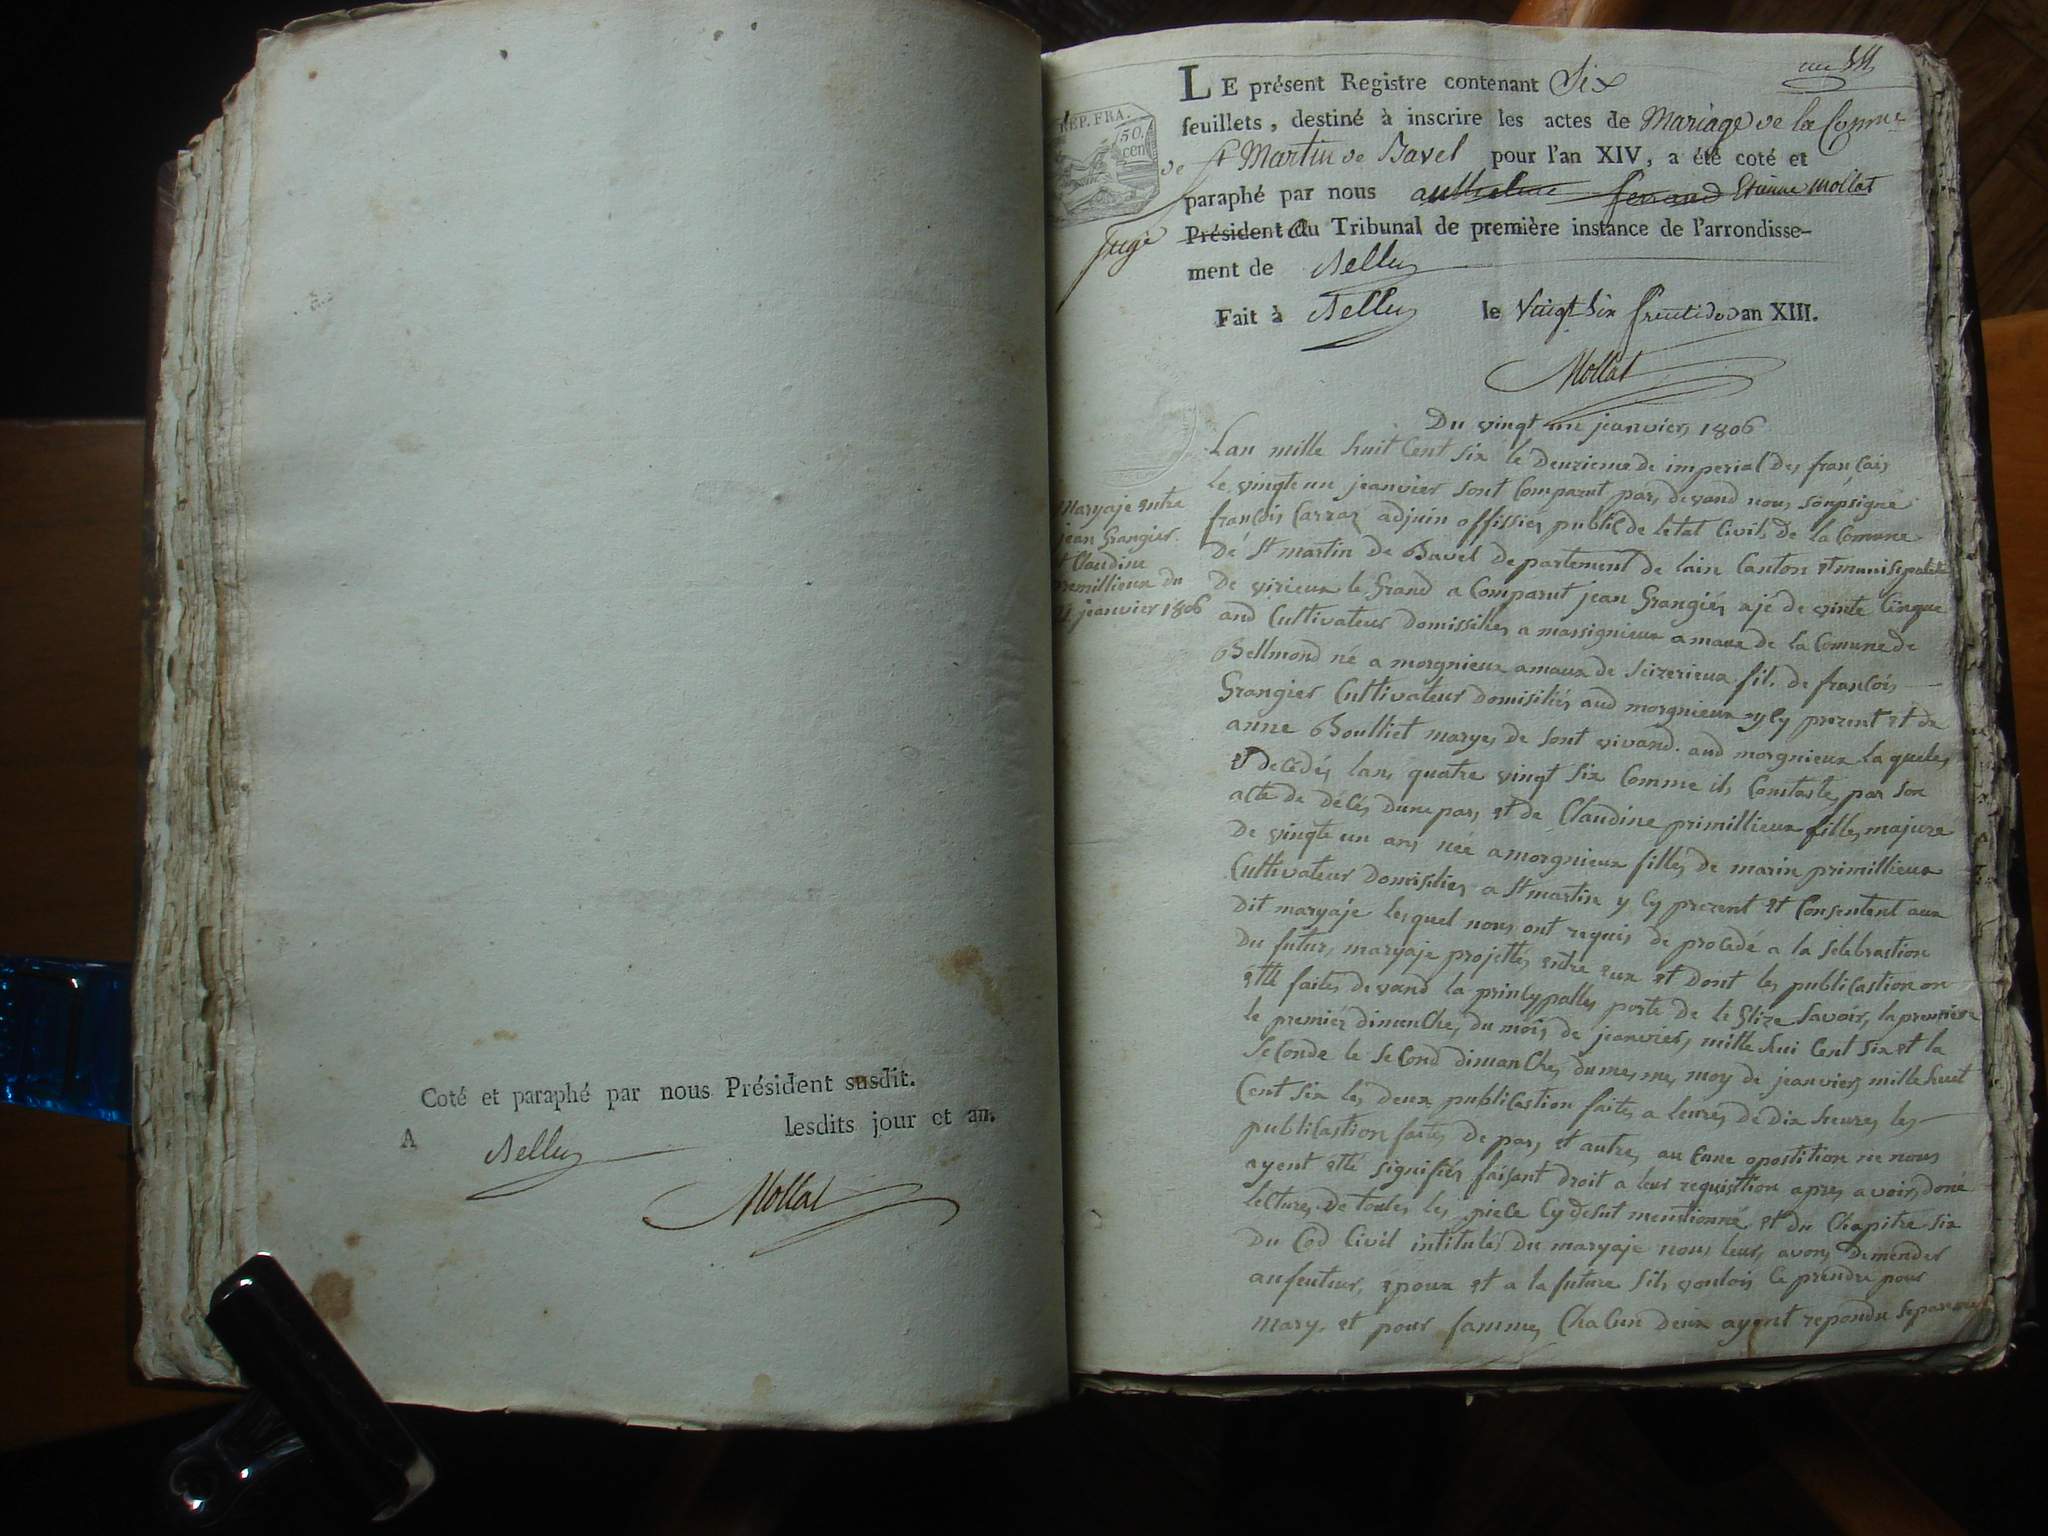 Coté et paraphé par nous Président susdit.
A Belley lesdits jour et an.
Mollat
an 14
LE présent Registre contenant Six
feuillets, destiné à inscrire les actes de Mariage de la Comm.ne
de St Martin de Bavel pour l'an XIV, a été coté et
paraphé par nous anthelme ferrand Etienne Mollat
juge Président du Tribunal de première instance de l'arrondisse-
ment de Belley
Fait à Belley le Vingt Six fructidor an XIII.
Mollat
REP. FRA.
50.
cen
Maryaje entre
jean Grangier
et Claudine
premillieux du
21 jeanvier 1806
Du vingt un jeanvier 1806
Lan mille huit Cent Six le deuzieme de imperial des francais
le vingte un jeanvier sont Comparut pars devand nous sousigné
francois Carraz adjuin offissier public de letat Civil de la Comune
de St martin de Bavel departement de lain Canton et munisipalité
de virieux le Grand a Comparut jean Grangier ajé de vinte Cinque
and Cultivateur domissilier a massignieux amaux de la Comune de
Bellmond né a morgnieux amaux de Seizerieux fil. de francois
Grangier Cultivateur domisiliés aud morgnieux yCy prezent et de
anne Boulliet marye, de sont vivand. aud morgnieux laqueles
et decedés lans quatre vingt six Comme ils Constaste par son
acte de décés dune pars et de Claudine primillieux filles majure
de vingte un ans née a morgnieux filles de marin primillieux
Cultivateur domisilier a St martin y Cy prezent et Consentent aux
dit maryaje lesquel nous ont requis de procedé a la selebrastion
du futur maryaje projettes entre eux et dont les publicastion on
etté faites devand la princypalles porte de leglize Savoir, la premiere
le premier dimenches du mois de jeanviers mille hui Cent Six et la
seconde le second dimanches du mesmes moy de jeanvier mille huit
Cent six les deux publicastion faites a leures de dix heures les
publicastion faites de pars et autres auCune opostition ne nous
ayent etté signifiés faisant droit a leur requisition apres avoir doné
lectures de toutes les piece Cy desut menstionné et du Chapitre six
du Cod Civil intitules du maryaje nous leurs avons demender
au feuteur, epoux et a la future sils voulois Ce prendre pour
mary, et pour famme, ChaCun deux ayent repondu